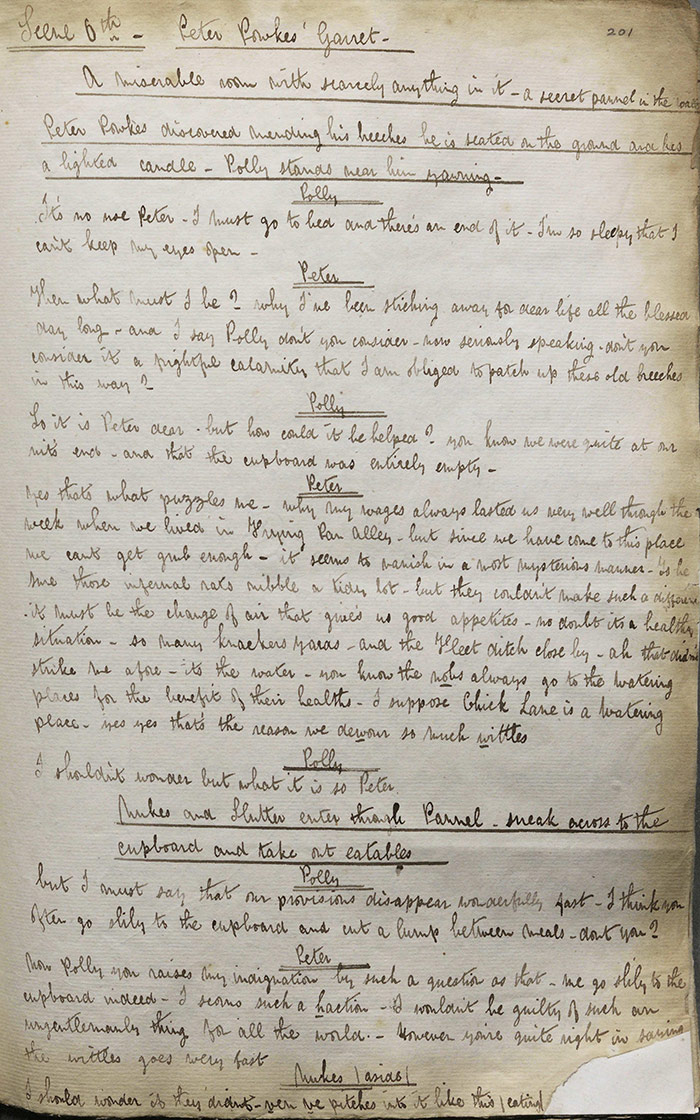 Scene 6th - Peter Powkes' Garret -
201
A miserable room with scarcely anything in it - a secret pannel in the
Peter Powkes discovered mending his breeches he is seated on the ground and has
a lighted candle - Polly stands near him yawning -
Polly
It's no use Peter - I must go to bed and there's an end of it - I'm so sleepy that I
can't keep my eyes open -
Peter
Then what must I be? why I've been stiching away for dear life all the blessed
day long - and I say Polly don't you consider - now seriously speaking - don't you
consider it a frightful calamity that I am obliged to patch up these old breeches
in this way?
Polly
So it is Peter dear - but how could it be helped? you know we were quite at our
wit's end - and that the cupboard was entirely empty -
Peter
Yes thats what puzzles me - why my wages always lasted us very well through the
week when we lived in Frying Pan Alley - but since we have come to this place
we cant get grub enough - it seems to vanish in a most mysterious manner - To be
sure those infernal rats nibble a tidy lot - but they couldn't make such a difference
it must be the change of air that gives us good appetites - no doubt its a healthy
situation - so many knackers yards - and the Fleet ditch close by - ah that did'nt
strike me afore - its the water - you know the nobs always go to the watering
places for the benefit of their healths - I suppose Chick Lane is a watering
place - yes yes that's the reason we dewour so much wittles
Polly
I should'nt wonder but what it is so Peter.
Nukes and Flutter enter through Pannel - sneak across to the
cupboard and take out eatables
Polly
but I must say that our provisions disappear wonderfully fast - I think you
often go slily to the cupboard and cut a lump between meals - dont you?
Peter
Now Polly you raises my indignation by such a question as that - me go slily to the
cupboard indeed - I scorns such a haction - I wouldn't be guilty of such an
ungentlemanly thing for all the world. - However you're quite right in saying
the wittles goes wery fast
Nukes (aside)
I should wonder if they didnt - ven ve pitches into it like this (eating)